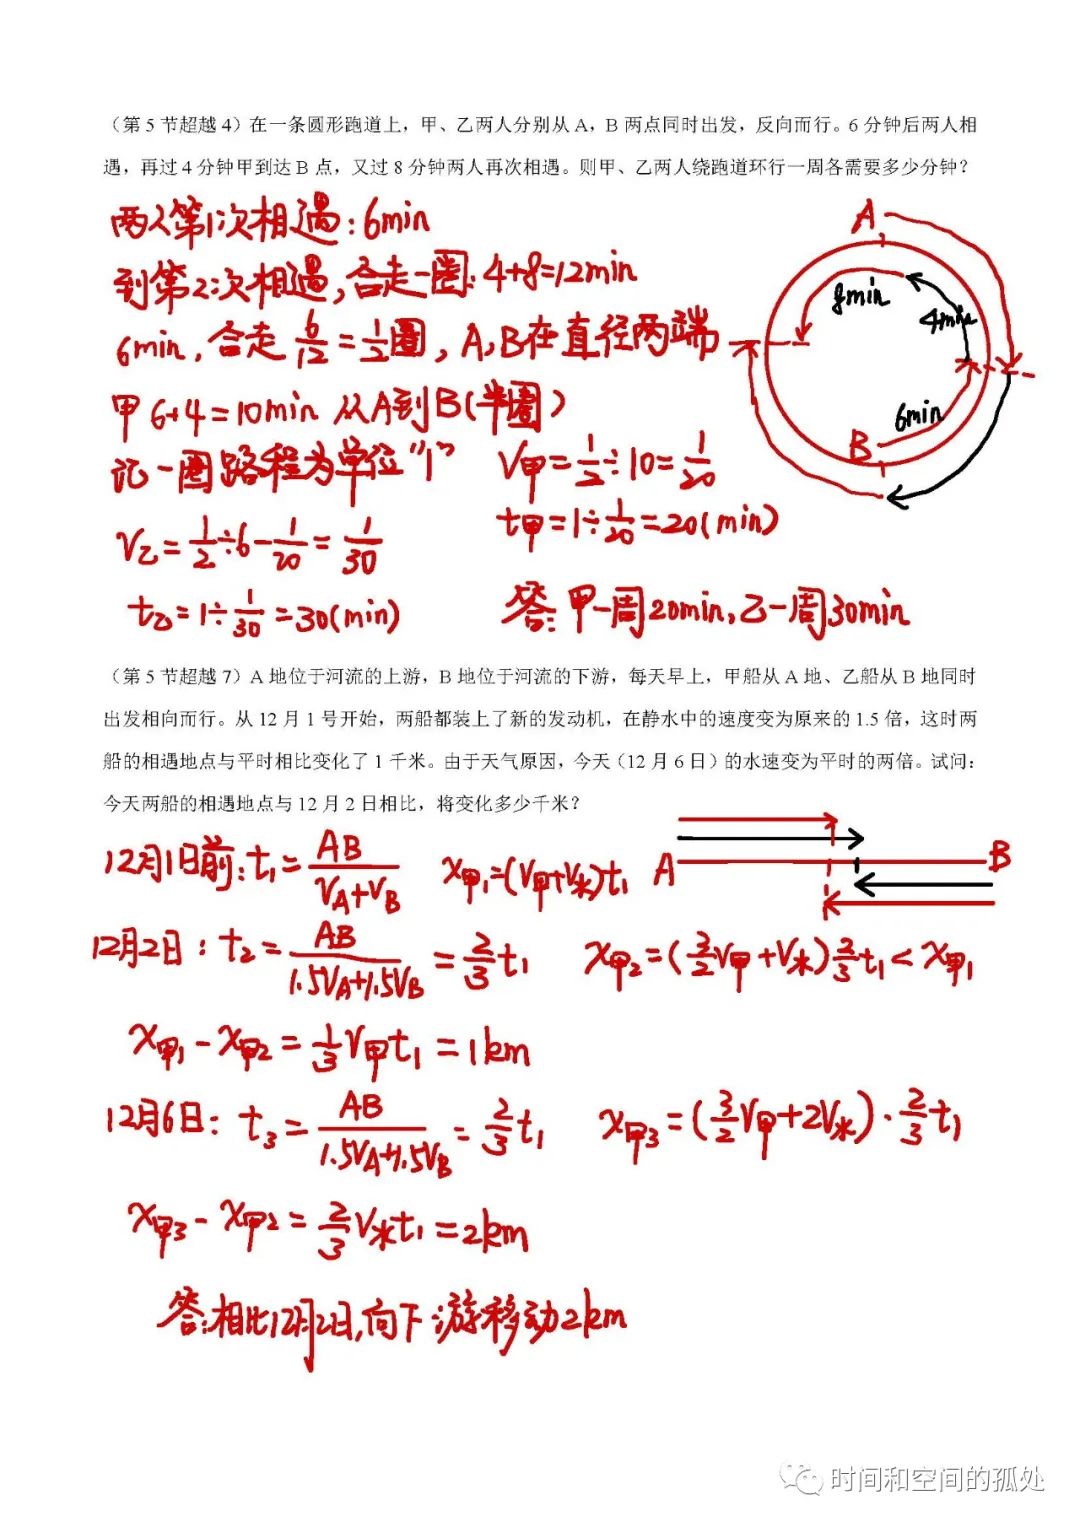 （第5节超越4）在一条圆形跑道上，甲、乙两人分别从A，B两点同时出发，反向而行。6分钟后两人相
遇，再过4分钟甲到达B点，又过8分钟两人再次相遇。则甲、乙两人绕跑道环行一周各需要多少分钟？
两人第1次相遇：6min
到第2次相遇，合走一圈：4+8=12min
6min，合走 6/12=1/2圈，A，B在直径两端
甲 6+4=10min 从A到B（半圈）
记一圈路程为单位“1”
V甲=1/2÷10=1/20
t甲=1÷1/20=20(min)
V乙=1/2÷6-1/20=1/30
t乙=1÷1/30=30(min)
答：甲一周20min，乙一周30min
A
8min
4min
6min
B
（第5节超越7）A地位于河流的上游，B地位于河流的下游，每天早上，甲船从A地、乙船从B地同时
出发相向而行。从12月1号开始，两船都装上了新的发动机，在静水中的速度变为原来的1.5倍，这时两
船的相遇地点与平时相比变化了1千米。由于天气原因，今天（12月6日）的水速变为平时的两倍。试问：
今天两船的相遇地点与12月2日相比，将变化多少千米？
12月1日前：t₁=AB/(VA+VB) x甲₁=(V甲+V水)t₁
A B
12月2日：t₂=AB/(1.5VA+1.5VB)=2/3t₁ x甲₂=(3/2V甲+V水)2/3t₁<x甲₁
x甲₁-x甲₂=1/3V甲t₁=1km
12月6日：t₃=AB/(1.5VA+1.5VB)=2/3t₁ x甲₃=(3/2V甲+2V水)·2/3t₁
x甲₃-x甲₂=2/3V水t₁=2km
答：相比12月2日，向下游移动2km
时间和空间的孤处